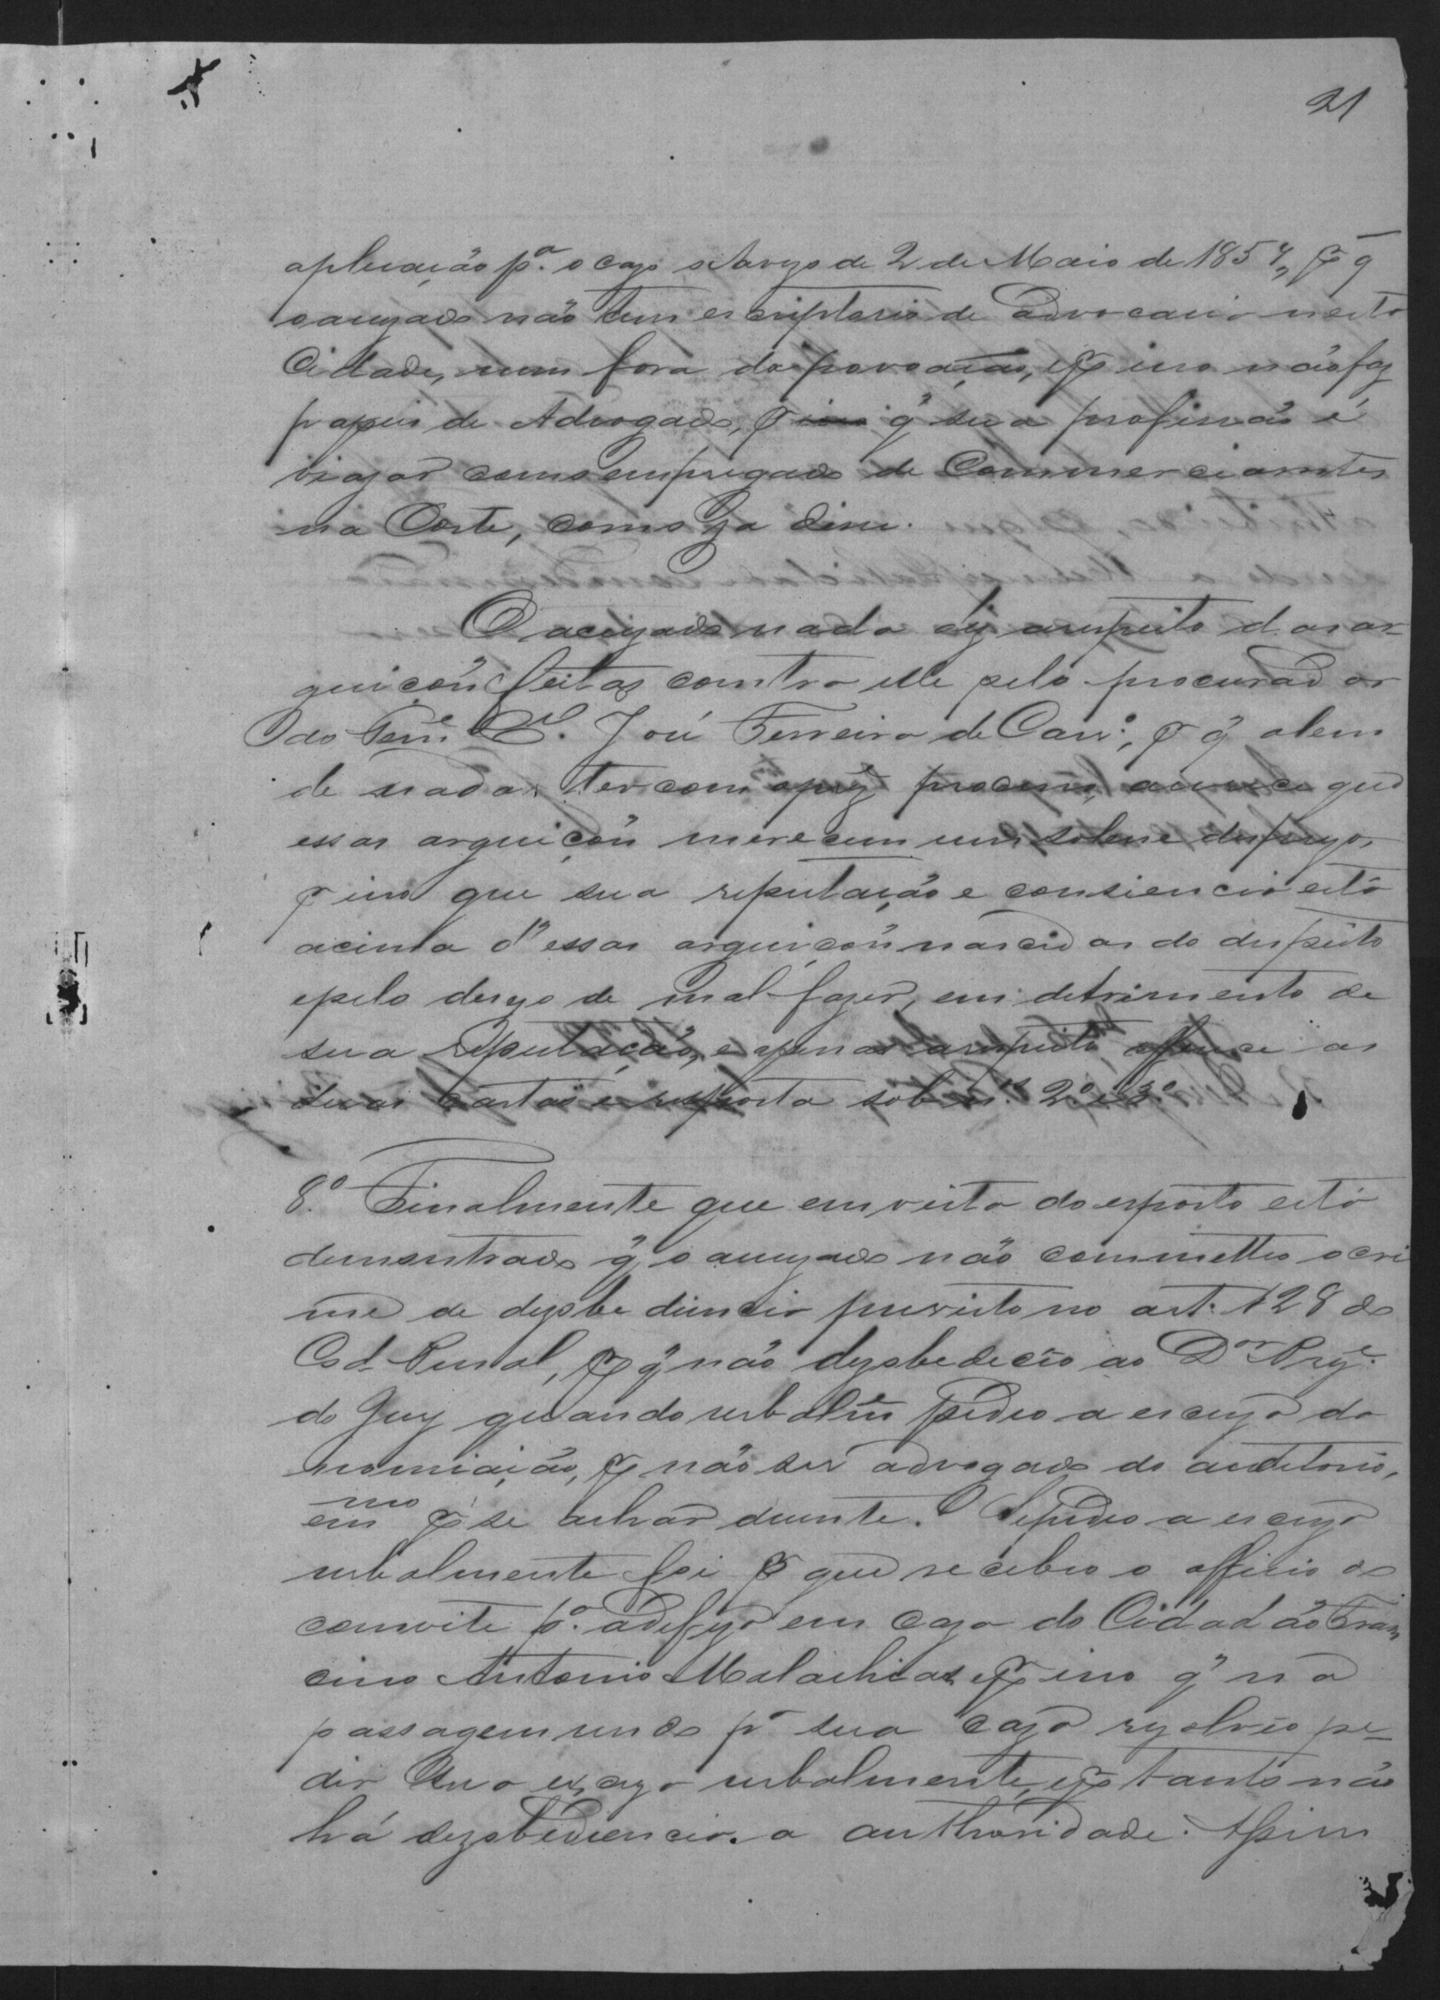 21
aplicação pª. o cazo o Avizo de 2 de Maio de 1854, p q̃
o acuzado não tem escriptorio de advocacia nesta
Cidade, nem fora da povoação, e p isso não faz
papeis de Advogado, p isso q̃ sua profissão é
viajar como empregado de Commerciantes
na Corte, como ja disse.
O acuzado nada diz a respeito das ar-
guiçoẽs feitas contra elle pelo procurador
do Tenᵉ Cᵉˡ. José Ferreira de Carvº, p q̃ alem
de nada ter com o prezᵉ processo, accresce que
essas arguiçoẽs merecem um solene desprezo,
p isso que sua reputação e consiencia está
acima d'essas arguiçoẽs nascidas do despeito
e pelo dezejo de mal fazer, em detrimento de
sua reputação, e apenas a respeito offerece as
duas cartas e resposta sob nˢ. 2º e 3º
8º. Finalmente que em vista do exposto está
demonstrado q̃ o acuzado não commetteo o cri
me de dezobediencia previsto no art. 128 do
Cod. Penal, p q̃ não dezobedeceo ao Dᵒʳ Prezᵉ.
do Jury quando verbalmᵉ pedio a escuza da
nomiação, p não ser advogado do auditorio,
mo
em p se achar doente. Se pedio a escuza
verbalmente foi p que recebeo o officio de
convite pª. a defeza em caza do Cidadão Fran
cisco Antonio Malachias, e p isso q̃ na
passagem vindo pª sua caza rezolveo pe-
dir sua escuza verbalmente, e p tanto não
há dezobediencia a authoridade. Assim